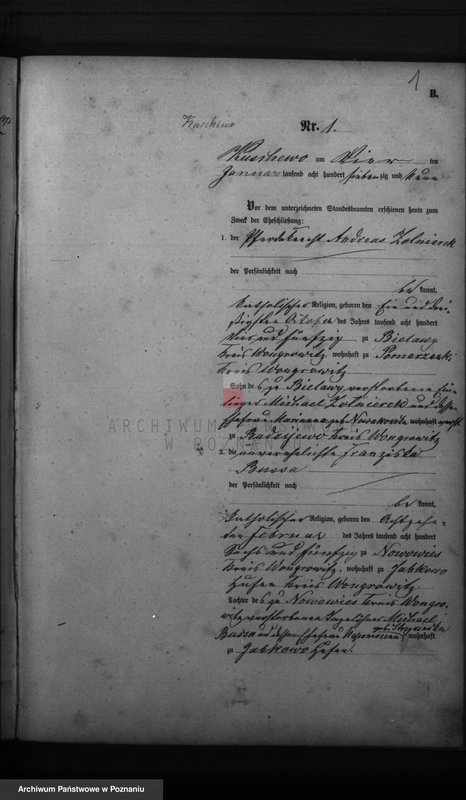 1
B.
Kuschewo
Nr. 1.
Kuschewo am Vier ten
Januar tausend acht hundert siebenzig und neun
Vor dem unterzeichneten Standesbeamten erschienen heute zum
Zweck der Eheschließung:
1. der Pferdeknecht Andreas Zolnierek
der Persönlichkeit nach
be kannt,
katholischer Religion, geboren den ein und drei-
ßigsten October des Jahres tausend acht hundert
vier und fünfzig zu Bielawy
Kreis Wongrowitz, wohnhaft zu
Kreis Wongrowitz
Sohn des zu Bielawy verstorbenen Ein-
liegers Michael Zolnierek und dessen
Ehefrau Marianna geb wohnhaft
zu Kreis Wongrowitz
2. die unverehelichte Franziska
Bussa
der Persönlichkeit nach
be kannt,
katholischer Religion, geboren den achtzehn-
ten Februar des Jahres tausend acht hundert
sechs und fünfzig zu Nowowies
Kreis Wongrowitz, wohnhaft zu Zabkowo
Hufen Kreis Wongrowitz.
Tochter des zu Nowowies Kreis Wongro-
witz verstorbenen Michael
Bussa und dessen Ehefrau geb. wohnhaft
zu Zabkowo Hufen.
ARCHIWUM PAŃSTWOWE
W POZNANIU
Archiwum Państwowe w Poznaniu